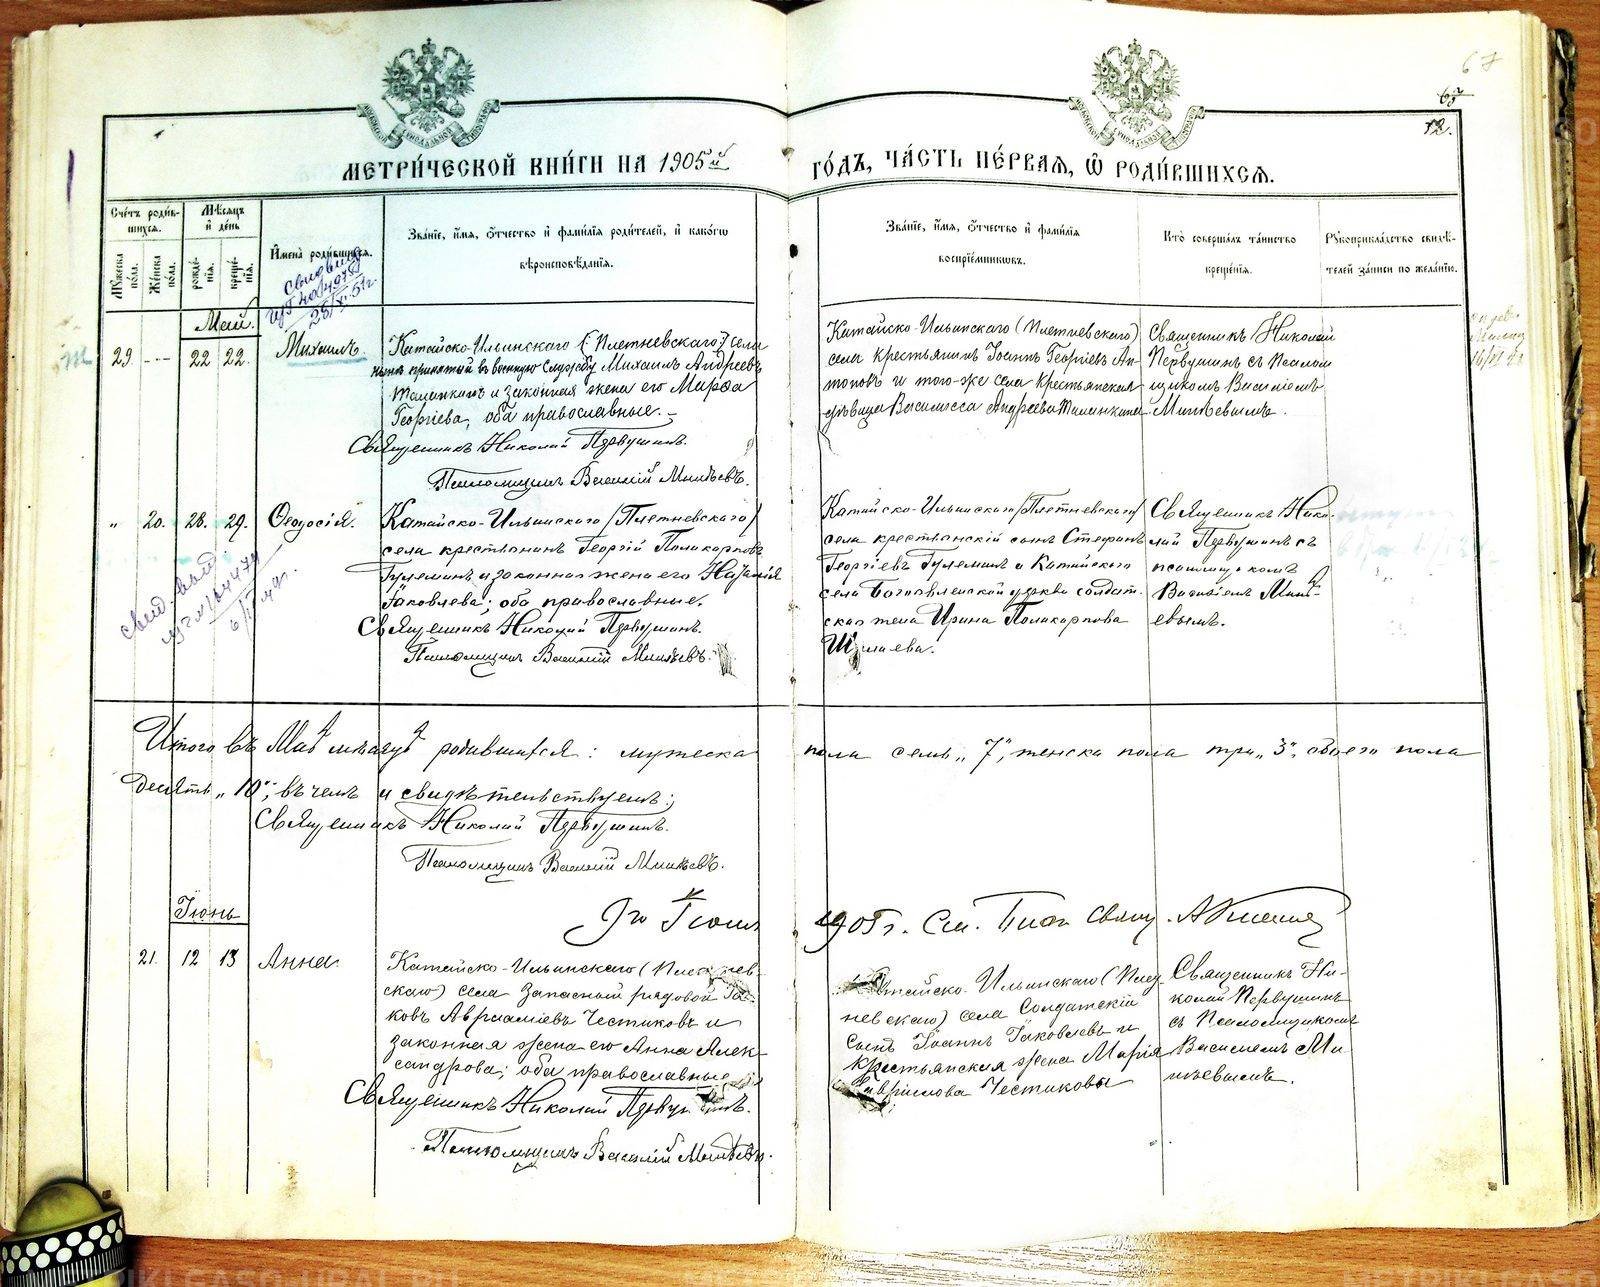 67
12.
МЕТРИ́ЧЕСКОЙ КНИ́ГИ НА 1905й ГО́ДЪ, ЧА́СТЬ ПЕ́РВАЯ, Ѡ РОДИ́ВШИХСЯ.
Сче́тъ роди́вшихся.
Мѣ́сяцъ и де́нь
Мꙋжеска по́ла.
Же́нска по́ла.
рожде́нїя.
креще́нїя.
И́мена роди́вшихся.
Зва́нїе, и́мя, о́тчество и фами́лїя роди́телей, и како́гѡ
вѣроисповѣ́данїя.
Зва́нїе, и́мя, о́тчество и фами́лїя
воспрїе́мникѡвъ.
Кто̀ соверша́лъ та́инство
креще́нїя.
Рꙋкоприкла́дство свидѣ́-
телей за́писи по жела́нїю.
Май.
29. 22 22. Михаилъ
Катайско-Ильинскаго (Плетневскаго) села
нынѣ принятый въ военную службу Михаилъ Андреевъ
и законная жена его Марѳа
Георгіева, оба православные.
Священникъ Николай Первушинъ.
Псаломщикъ Василій Минѣевъ.
Катайско-Ильинскаго (Плетневскаго)
села крестьянинъ Іоаннъ Георгіевъ Ан-
тоновъ и того-же села крестьянская
дѣвица Василисса Андреева
Священникъ Николай
Первушинъ съ Псалом
щикомъ Василіемъ
Минѣевымъ.
" 20. 28. 29. Ѳеодосія.
Катайско-Ильинскаго (Плетневскаго)
села крестьянинъ Георгій Поликарповъ
Гулеминъ и законная жена его Наталія
Іаковлева; оба православные.
Священникъ Николай Первушинъ.
Псаломщикъ Василій Минѣевъ.
Катайско-Ильинскаго (Плетневскаго)
села крестьянскій сынъ Стефанъ
Георгіевъ Гулеминъ и Катайскаго
села Богоявленской церкви солдат-
ская жена Ирина Поликарпова
Священникъ Нико-
лай Первушинъ съ
псаломщикомъ
Василіемъ Минѣ-
евымъ.
Итого въ Маѣ мѣсяцѣ родившихся: мужеска пола семь „7", женска пола три „3", обоего пола
десять „10"; въ чемъ и свидѣтельствуемъ:
Священникъ Николай Первушинъ.
Псаломщикъ Василій Минѣевъ.
Іюнь
9го Іюля 1905 г. См. Благ. Свящ.
21. 12 13 Анна.
Катайско-Ильинскаго (Плетнев-
скаго) села запасный рядовой Іа-
ковъ Авраміевъ Честиковъ и
законная жена его Анна Алек-
сандрова; оба православные
Священникъ Николай Первушинъ.
Псаломщикъ Василій Минѣевъ.
Катайско-Ильинскаго (Плет-
невскаго) села Солдатскій
сынъ Іоаннъ Іаковлевъ и
крестьянская жена Марія
Гаврилова Честиковы
Священникъ Ни-
колай Первушинъ
съ Псаломщикомъ
Василіемъ Ми-
нѣевымъ.